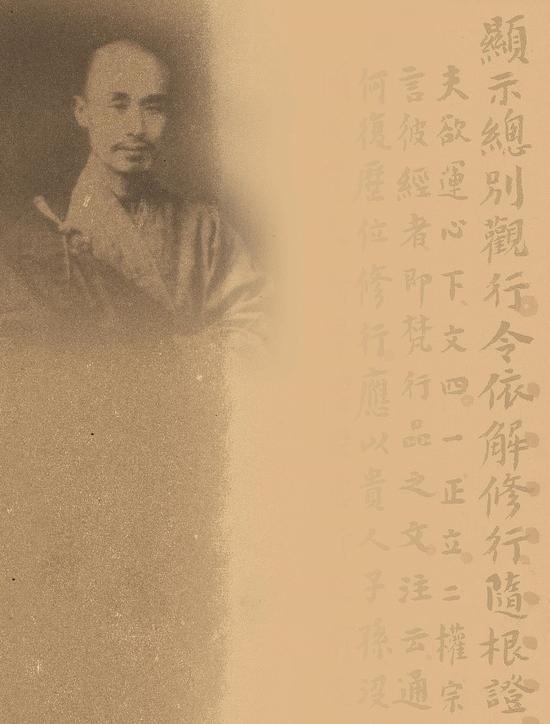 顯示總別觀行令依解修行隨根證
夫欲運心下文四一正立二權宗
言彼經者即梵行品之文注云通
何復歷位修行應以貴人子孫沒